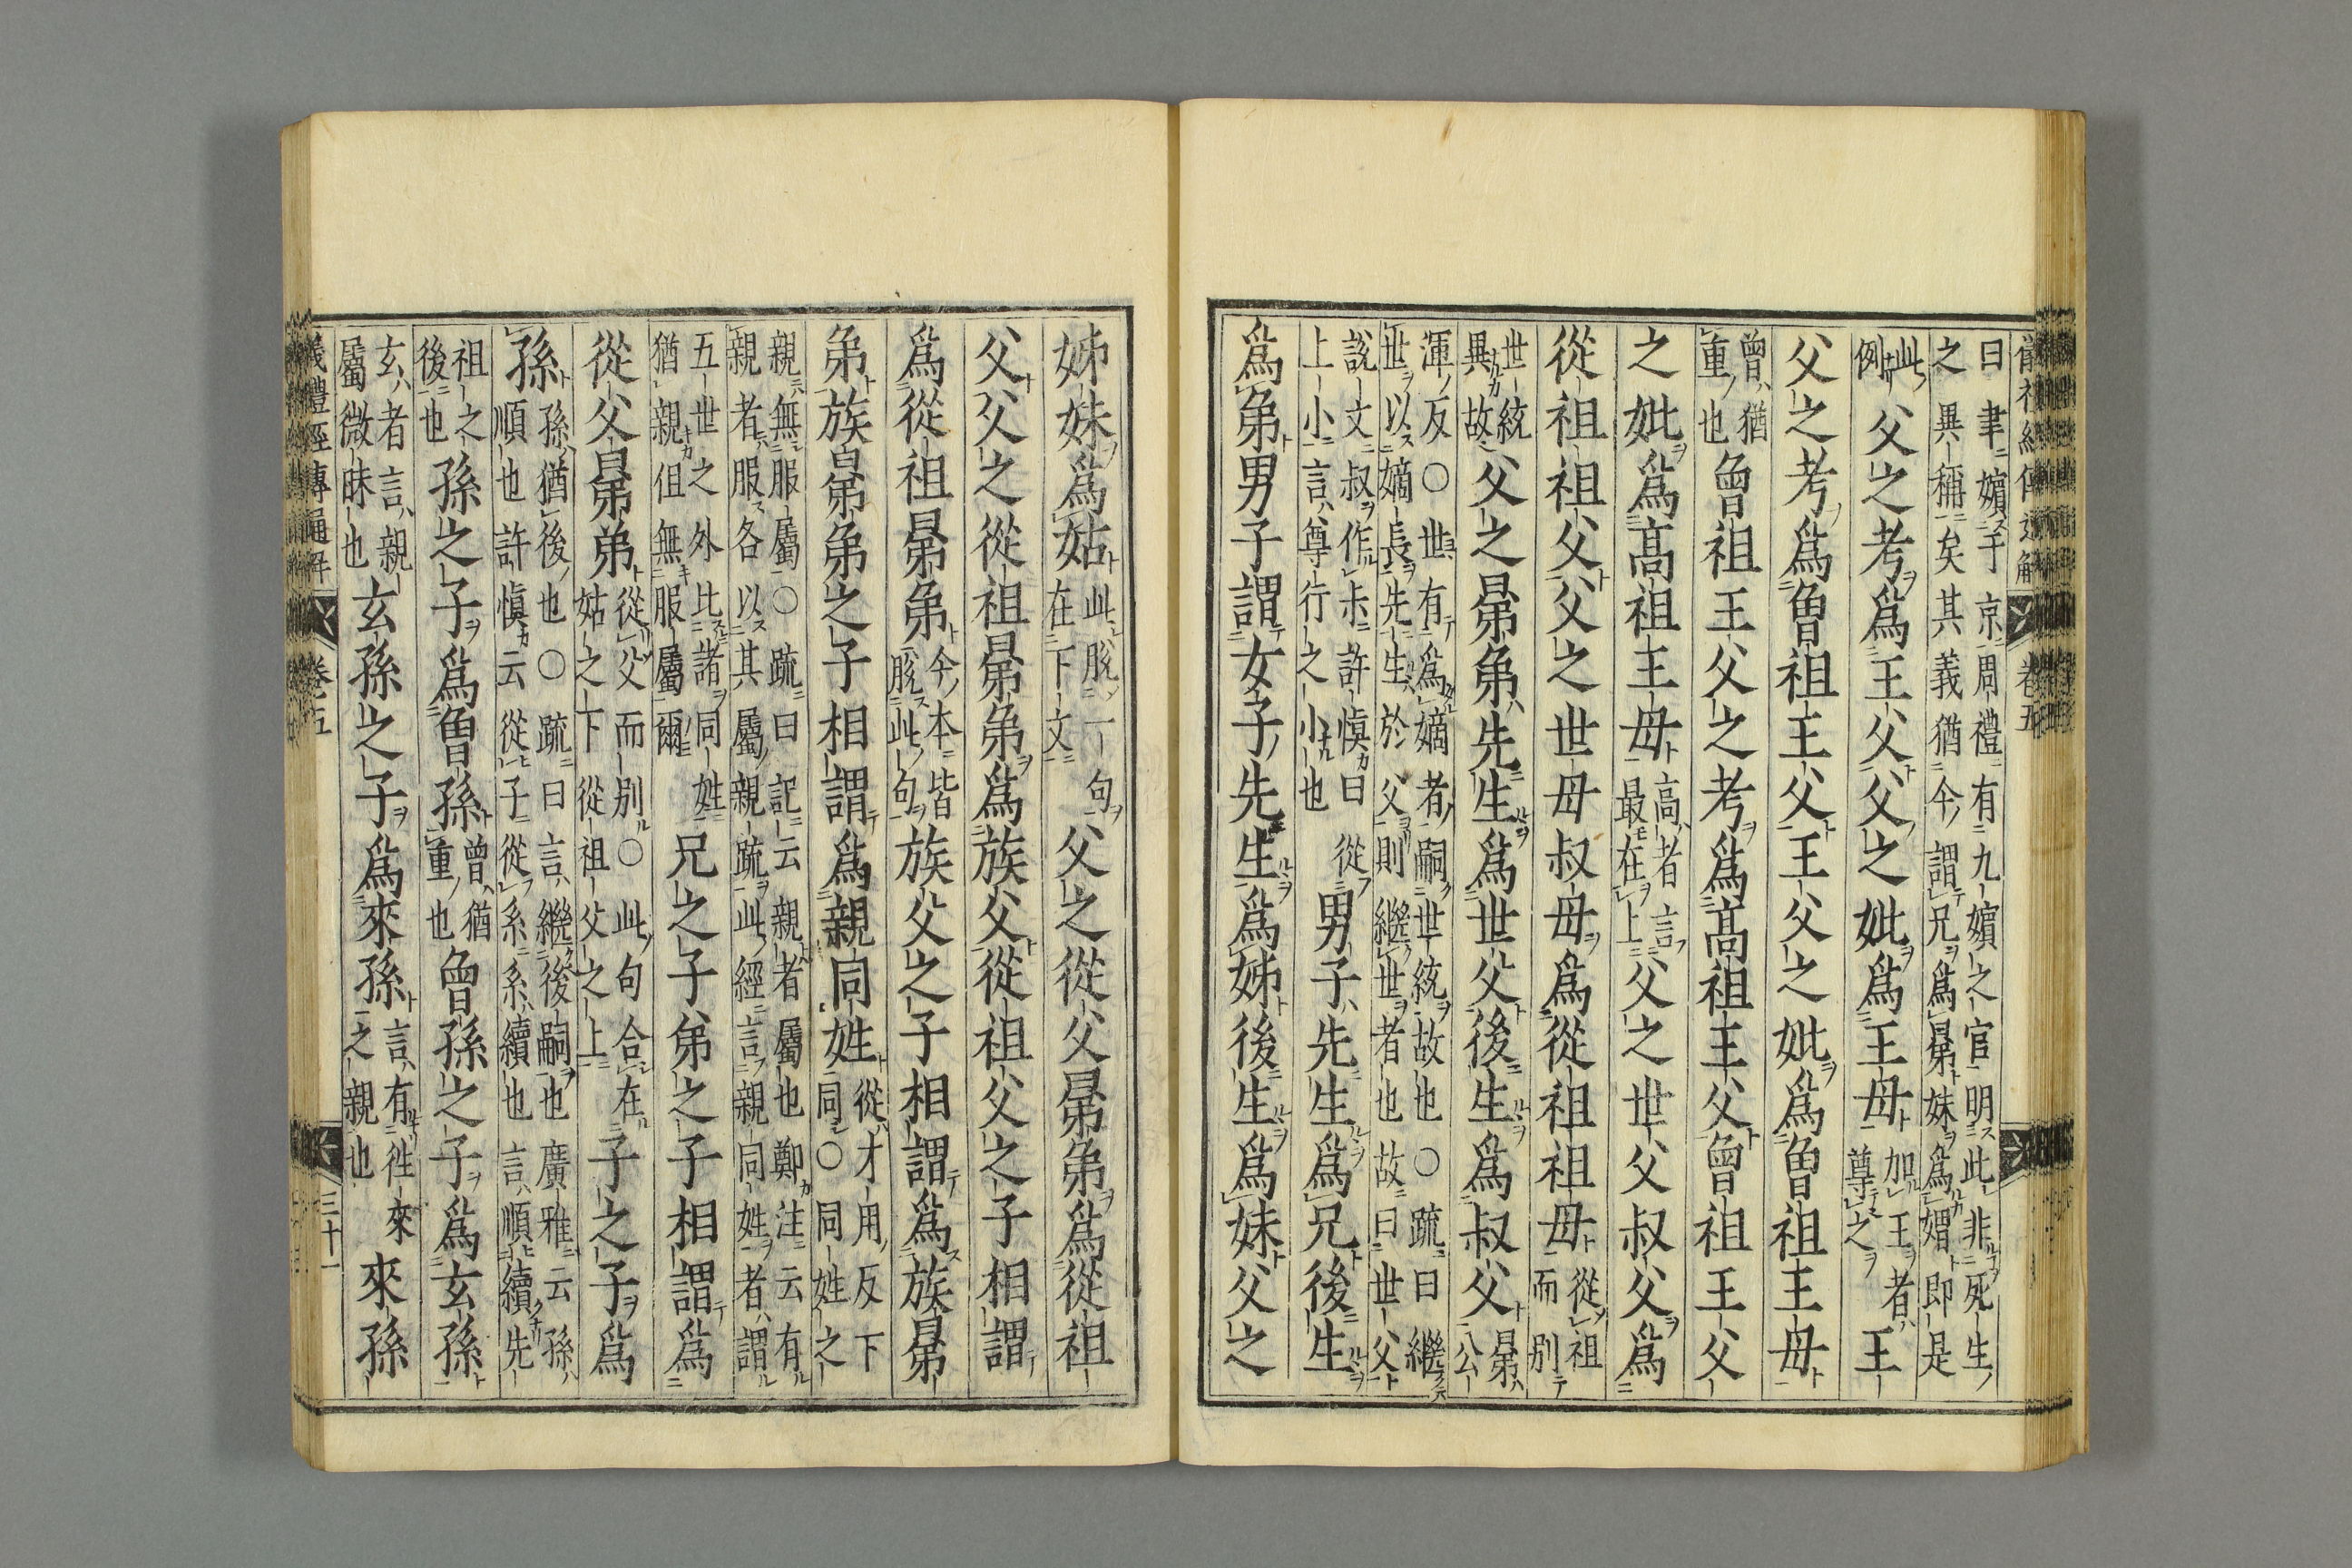 卷五
曰聿嬪于京周禮有九嬪之官明此非死生
之異稱矣其義猶今謂兄爲晜妹爲媦即是
此
例
父之考爲王父父之妣爲王母
加王者
尊之
王
父之考爲曾祖王父王父之妣爲曾祖王母
曾猶
重也
曾祖王父之考爲高祖王父曾祖王父
之妣爲高祖王母
高者言
最在上
父之世父叔父爲
從祖祖父父之世母叔母爲從祖祖母
從祖
而別
世統
異故
父之晜弟先生爲世父後生爲叔父
晜
公
渾反○世有爲嫡者嗣世統故也○疏曰繼
世以嫡長先生於父則繼世者也故曰世父
說文叔作尗許愼曰從
上小言尊行之小也
男子先生爲兄後生
爲弟男子謂女子先生爲姊後生爲妹父之
姊妹爲姑
此脫一句
在下文
父之從父晜弟爲從祖
父父之從祖晜弟爲族父從祖父之子相謂
爲從祖晜弟
今本皆
脫此句
族父之子相謂爲族晜
弟族晜弟之子相謂爲親同姓
從才用反下
同○同姓之
親無服屬○疏曰記云親者屬也鄭注云有
親者服各以其屬親疏此經言親同姓者謂
五世之外比諸同姓
猶親但無服屬爾
兄之子弟之子相謂爲
從父晜弟
從父而別○此句合在
姑之下從祖父之上
子之子爲
孫
孫猶後也○疏曰言繼後嗣也廣雅云孫
順也許愼云從子從系系續也言順續先
祖之
後也
孫之子爲曾孫
曾猶
重也
曾孫之子爲玄孫
玄者言親
屬微昧也
玄孫之子爲來孫
言有徃來
之親也
來孫
儀禮經傳通解 卷五 三十一